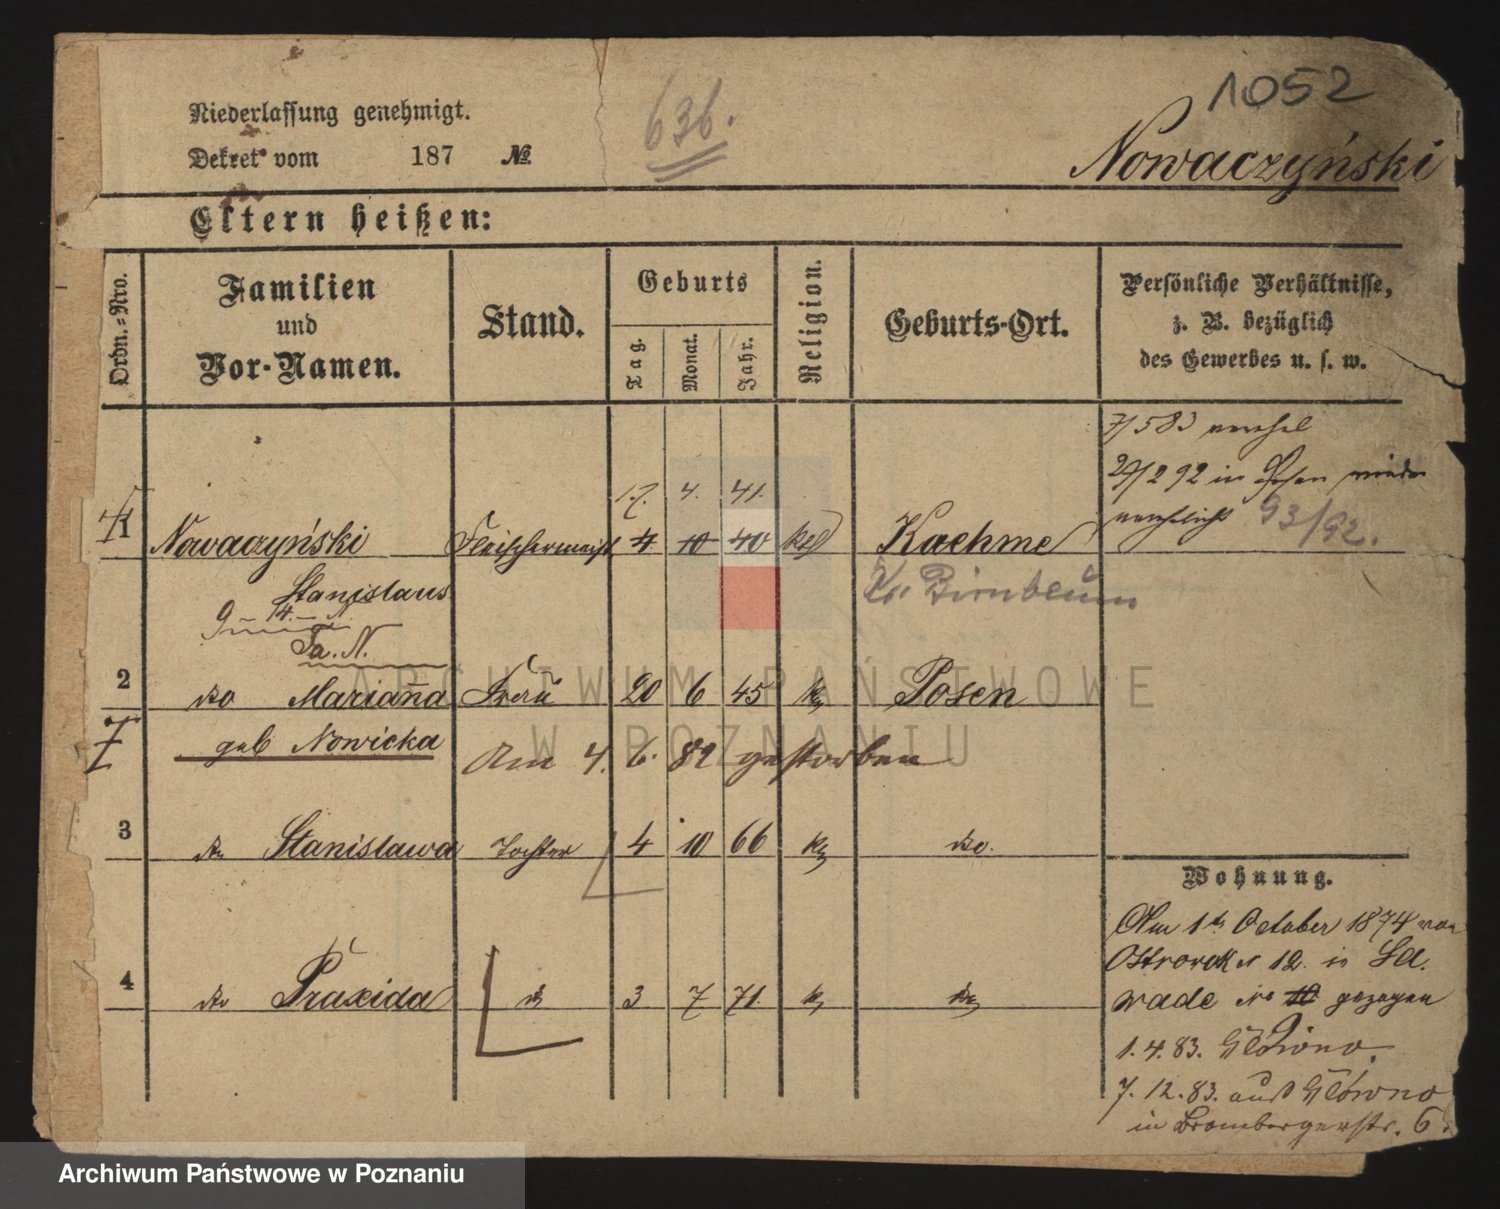 Niederlassung genehmigt.
Dekret vom 187 №
636.
1052
Nowaczyński
Eltern heißen:
Ordn.-Nro.
Familien und Vor-Namen.
Stand.
Geburts
Tag.
Monat.
Jahr.
Religion.
Geburts-Ort.
Persönliche Verhältnisse,
z. B. bezüglich
des Gewerbes u. s. w.
7/5 83 verehel
27/2 92 in Posen wieder
verehelicht 93/92.
17. 4. 41.
1 Nowaczyński Fleischermeist 4 10 40 kath Kaehme
Stanislaus Kr. Birnbaum
Ta. N.
2 do Marianna Frau 20 6 45 k Posen
geb Nowicka Am 4. 6. 82 gestorben
3 do Stanislawa Tochter 4 10 66 k do.
4 do Praxida d 3 7 71. k do
Wohnung.
Am 1t October 1874 von
Ostrowek № 12. in Sd.
wade № 10 gezogen
1.4.83. Główno.
7.12.83. aus Główno
in Brombergerstr. 6.
ARCHIWUM PAŃSTWOWE
W POZNANIU
Archiwum Państwowe w Poznaniu